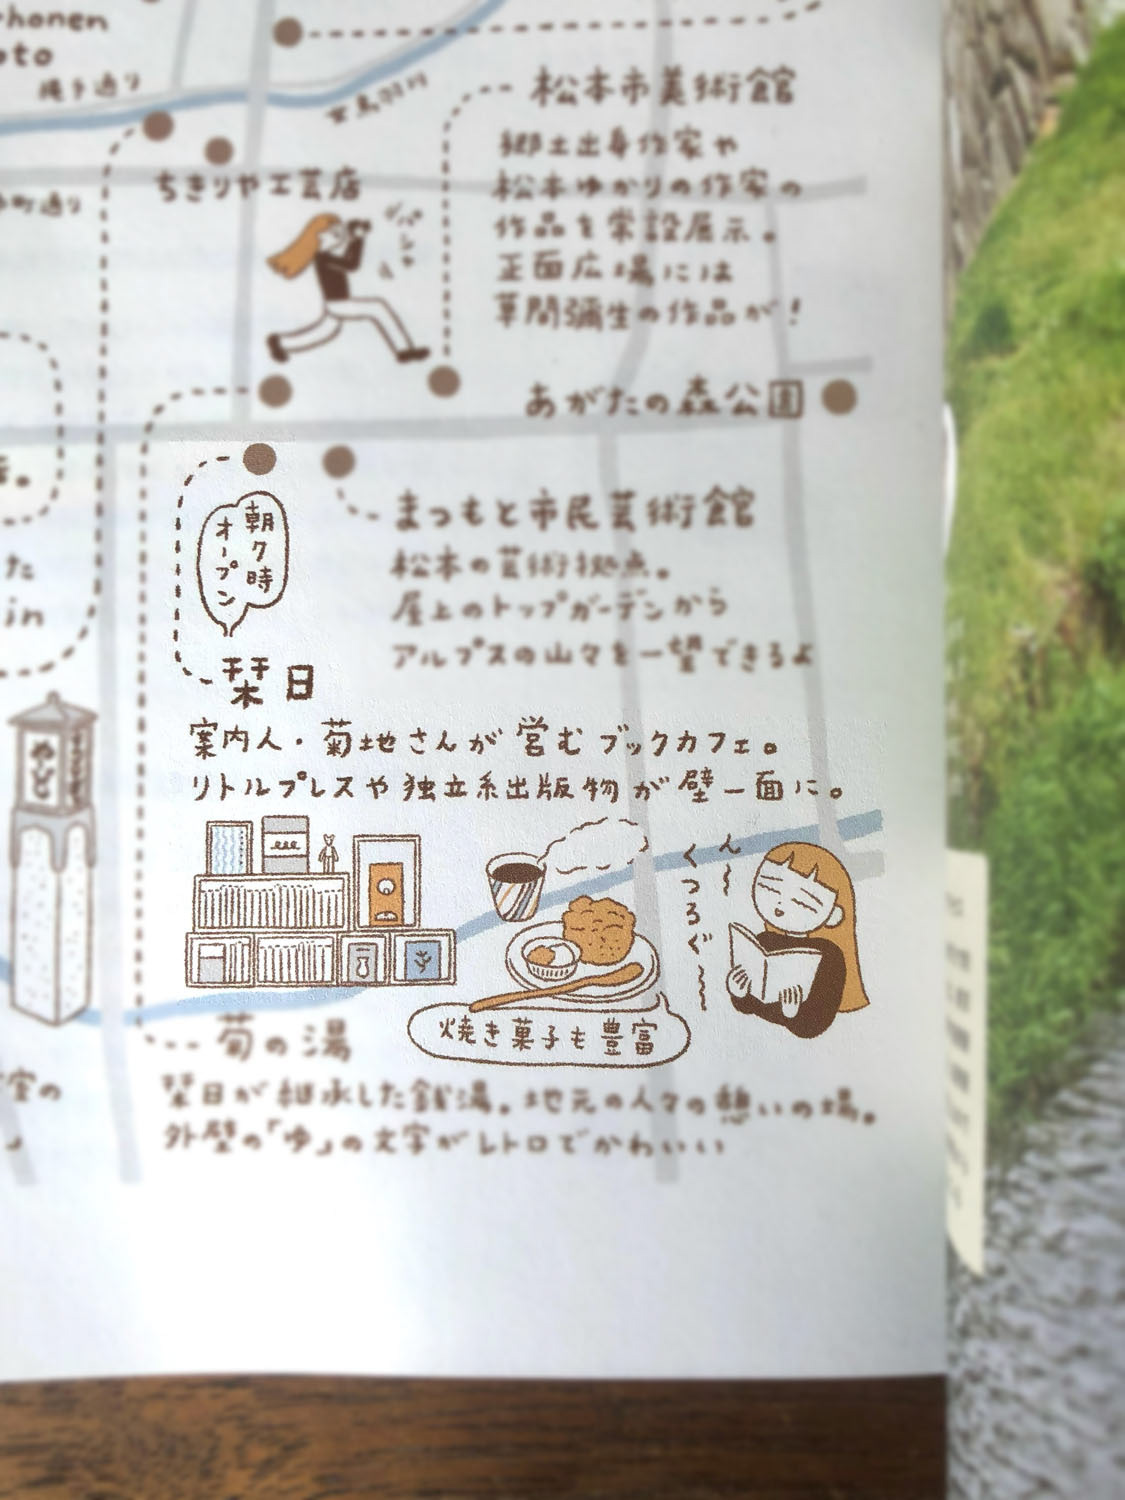 honen
oto
縄手通り
女鳥羽川
ちきりや工芸店
町通り
パシャ
松本市美術館
郷土出身作家や
松本ゆかりの作家の
作品を常設展示。
正面広場には
草間彌生の作品が!
あがたの森公園
まつもと市民芸術館
松本の芸術拠点。
屋上のトップガーデンから
アルプスの山々を一望できるよ
朝7時
オープン
栞日
案内人・菊地さんが営むブックカフェ。
リトルプレスや独立系出版物が壁一面に。
ん〜
くつろぐ〜
焼き菓子も豊富
菊の湯
栞日が継承した銭湯。地元の人々の憩いの場。
外壁の「ゆ」の文字がレトロでかわいい
た
in